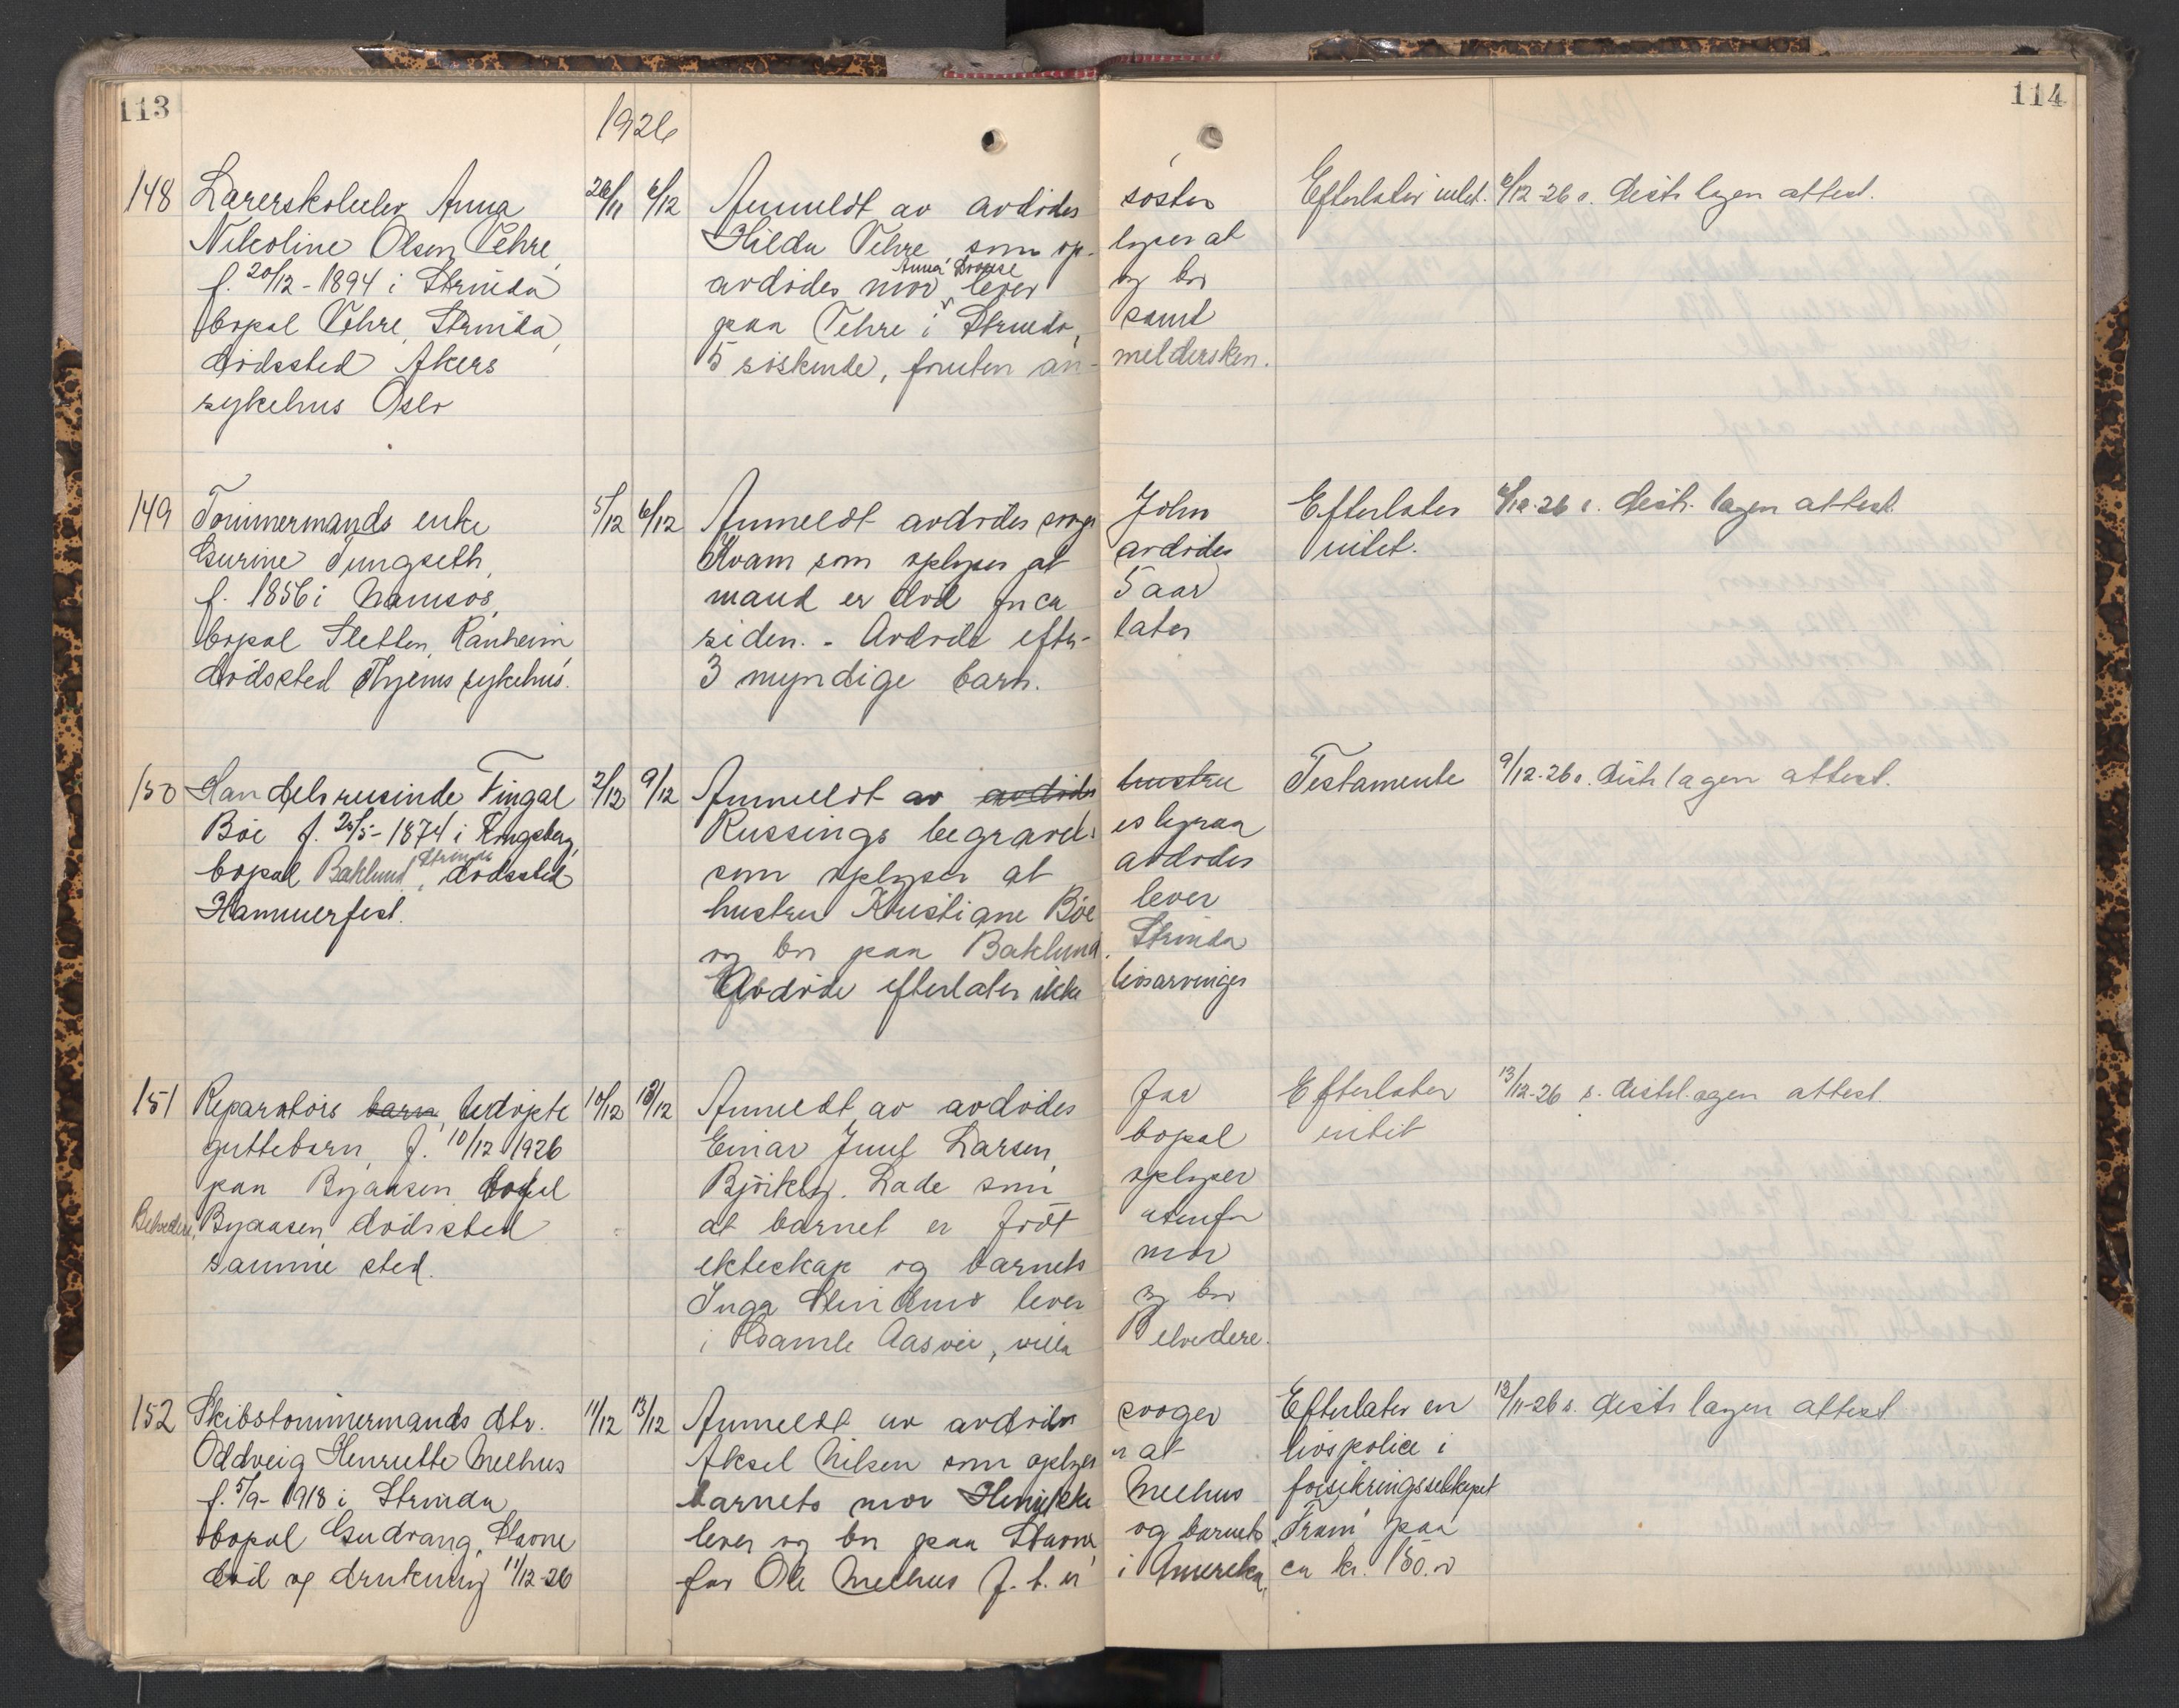 113
114
1926
148 Lærerskoleelev Anna 26/11 6/12 Anmeldt av avdødes søster Efterlater intet. 6/12-26 s. distr. lagen attest.
Nikoline Olsen Vehre, Hilda Vehre som op- lyser at
Anna Lovise
f. 20/12-1894 i Strinda avdødes mor lever og bor
bopæl Vehre, Strinda, paa Vehre i Strinda, samt
dødssted Akers 5 søskende, foruten an- meldersken.
sykehus Oslo
149 Tømmermands enke 5/12 6/12 Anmeldt avdødes svoger John Efterlater 6/12-26 s. distr. lagen attest.
Gurine Tungseth, Kvam som oplyser at avdødes intet.
f. 1856 i Namsos, mand er død for ca 5 aar
bopæl Sletten, Ranheim siden. - Avdøde efter- later
dødssted Thyens sykehus. 3 myndige barn.
150 Handelsreisende Fingal 2/12 9/12 Anmeldt av avdødes hustru Testamente 9/12-26 s. distr lagen attest.
Böe f. 25/5-1874 i Kongsberg, Russings begravels esbyraa
Strinda
bopæl Baklund, dødssted som oplyser at avdødes
Hammerfest. hustru Kristiane Böe lever
og bor paa Baklund, Strinda
Avdøde efterlater ikke livsarvinger
151 Reparatørs barn, udøpte 10/12 13/12 Anmeldt av avdødes far Efterlater 13/12-26 s. distrl.agen attest.
guttebarn, f. 10/12 1926 Einar Juul Larsen, bopæl intet
paa Byaasen bopæl Björkly. Lade som oplyser
Belvedere, Byaasen, dødssted at barnet er født utenfor
samme sted. ekteskap og barnets mor
Inga Strindmo lever og bor
i Gamle Aasvei, villa Belvedere.
152 Skibstømmermands dtr. 11/12 13/12 Anmeldt av avdødes svoger Efterlater en 13/11-26 s. distr lagen attest
Oddveig Henriette Melhus Aksel Nilsen som oplyser at livspolice i
f. 5/9-1918 i Strinda barnets mor Henrikke Melhus forsikringsselskapet
bopæl Gudvang, Stavne lever og bor paa Stavne, og barnets „Fram" paa
død og drukning 11/12-26 far Ole Melhus f. t. er i Amerika, ca kr. 150.00